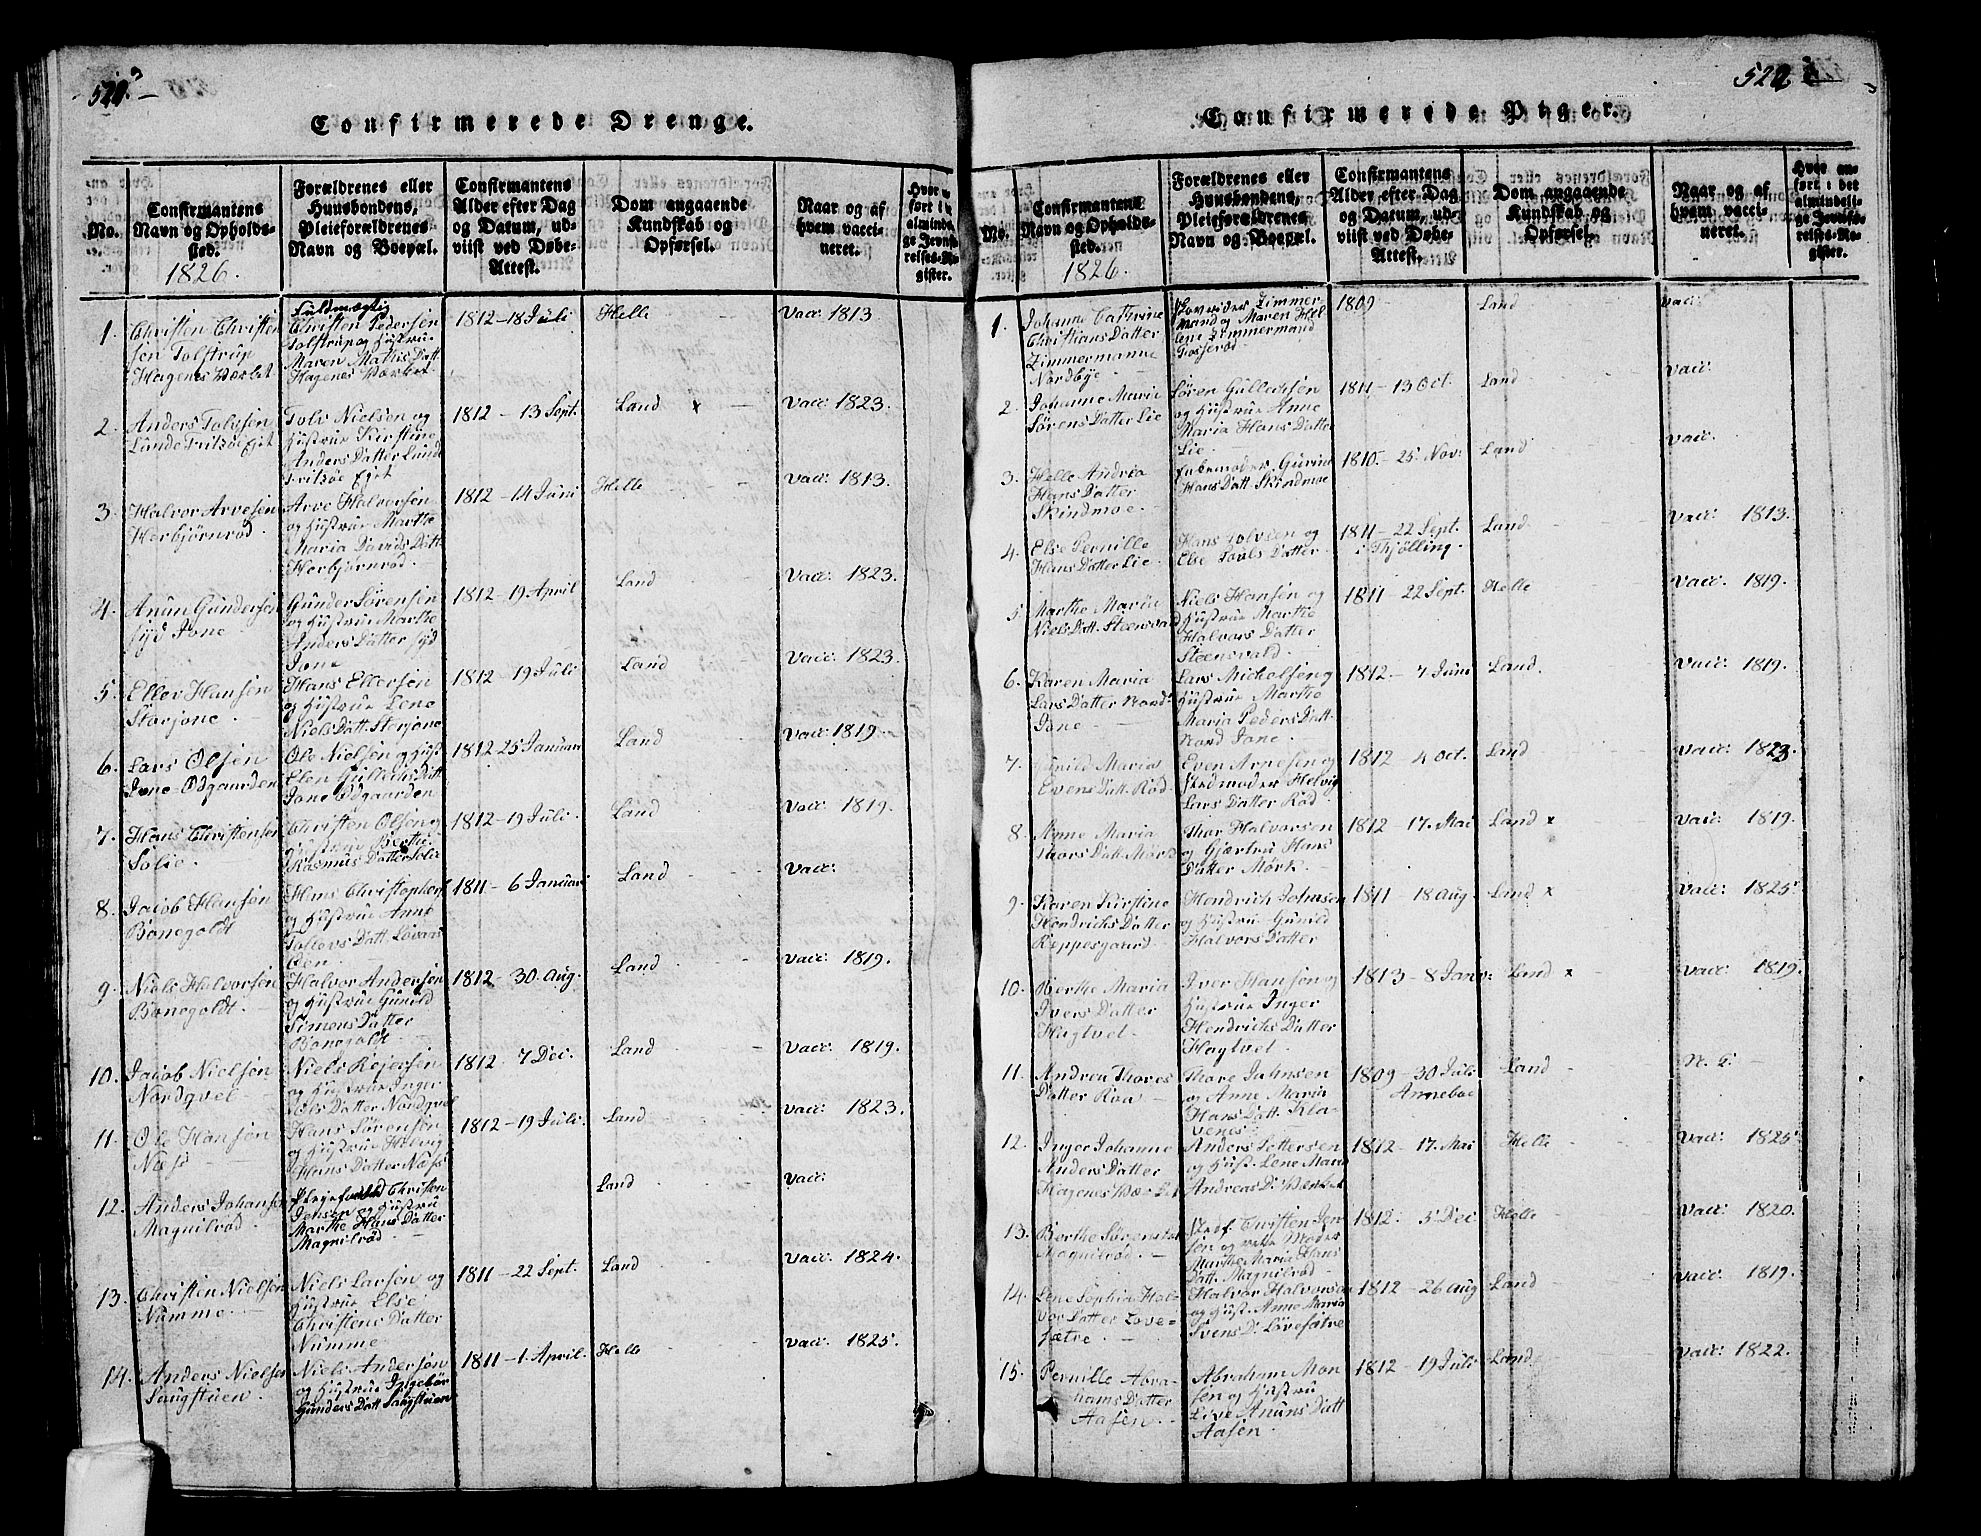 Confirmerede Drenge.
No.
Confirmantens
Navn og Opholds-
sted.
1826.
Forældrenes eller
Huusbondens,
Pleieforældrenes
Navn og Boepæl.
Confirmantens
Alder efter Dag
og Datum, ud-
viist ved Døbe-
Attest.
Dom angaaende
Kundskab og
Opførsel.
Naar og af
hvem vacci-
neret.
1.
Christen Christen
sen Tolstrup
Hagenes Værket
Fuldmægtig
Christen Pedersen
Tolstrup og Hustrue
Maren Mathis Datt.
Hagenes Værket
1812 - 18 Juli
Helle
Vacc: 1813
2.
Anders Tolvsen
Lunde Fritzøe Ejet
Tolv Nielsen og
Hustrue Kirstine
Anders Datter Lunde
Fritzøe Ejet
1812 - 13 Sept.
Land x
Vacc: 1823.
3.
Halvor Arvesen
Herbjørnrød
Arve Halvorsen
og Hustrue Marthe
Maria Davids Datt.
Herbjørnrød
1812 - 14 Juni
Helle
Vacc: 1813.
4.
Anun Gundersen
syd Jone
Gunder Sørensen
og Hustrue Marthe
Anders Datter syd
Jone
1812 - 19 April
Land
Vacc: 1823.
5.
Ellev Hansen
Størjone
Hans Ellevsen
og Hustrue Lene
Niels Datt. Størjone
1812 - 19 Juli
Land
Vacc: 1823.
6.
Lars Olsen
Jone Odgaarden
Ole Nielsen og Hust.
Elen Gullichs Datt.
Jone Odgaarden
1812 25 Januari
Land
Vacc: 1819.
7.
Hans Christensen
Solie.
Christen Olsen og
Hustrue Berthe
Rasmus Datter Solie
1812 - 19 Juli.
Land
Vacc: 1819.
8.
Jacob Hansen
Bonegoldt
Hans Christophers
og Hustrue Anne
1811 - 6 Januari
Land
Vacc:
9.
Niels Halvorsen
Bonegoldt.
Halvor Andersen
og Hustrue Gunild
Simens Datter
Bonegoldt
1812 - 30 Aug.
Land
Vacc: 1819.
10.
Jacob Nielsen
Nordqvel
Niels Rejersen
og Hustrue Inger
Tols Datter Nordqvel
1812 - 7 Dec.
Land
Vacc: 1819.
11.
Ole Hansen
Næss
Hans Sørensen
og Hustrue Helvig
Hans Datter Næss
1812 - 19 Juli.
Land
Vacc: 1823.
12.
Anders Johansen
Magnilrød
Jensen og Hustru
Marthe Hans Datter
Magnilrød
Land
Vacc:
13.
Christen Nielsen
Numme
Niels Larsen og
Hustrue Else
Christens Datter
Numme
1811 - 22 Sept.
Land
Vacc: 1824.
14.
Anders Nielsen
Saugstuen.
Niels Andersen
og Hustrue Ingebor
Gunders Datt Saugstuen
1811 - 1. April.
Helle
Vacc: 1825.
Confirmerede Piger.
No.
Confirmantens
Navn og Opholds-
sted.
1826.
Forældrenes eller
Huusbondens,
Pleieforældrenes
Navn og Boepæl.
Confirmantens
Alder efter Dag
og Datum, ud-
viist ved Døbe-
Attest.
Dom angaaende
Kundskab og
Opførsel.
Naar og af
hvem vacci-
neret.
Hvor an-
ført i det
almindeli-
ge Jevnfø-
relses-Re-
gister.
1.
Johanne Cathrine
Christians Datter
Zimmermanne
Nordbye
mand og Maren Hel
ene Zimmermand
1809
Land
Vacc:
2.
Johanne Maria
Sørens Datter Lie
Søren Gullichsen
og Hustrue Anne
Maria Hans Datter
Lie
1811 - 13 Oct.
Land
Vacc:
3.
Helle Andrea
Hans Datter
Skindmoe
Hans Datt. Skindmoe
1810 - 25 Nov:
Land
Vacc:
4.
Else Pernille
Hans Datter Lie
Hans Tolvsen og
Else Touls Datter
1811 - 22 Sept.
i Thjølling.
Land
Vacc: 1813.
5.
Marthe Maria
Niels Datt. Steensvald
Niels Hansen og
Hustrue Marthe
Halvors Datter
Steensvald
1811 - 22 Sept.
Helle
Vacc: 1819.
6.
Karen Maria
Lars Datter Nord-
Jone
Lars Michelsen og
Hustrue Marthe
Maria Peders Datt.
Nord Jone
1812 - 7 Juni
Land.
Vacc: 1819.
7.
Gunild Maria
Evens Datt. Rød
Even Arnesen og
Stedmoder Helvig
Lars Datter Rød
1812 4 Oct.
Land
Vacc: 1823.
8.
Anne Maria
Thors Datt. Mørk
Thor Halvorsen
og Gjertru Hans
Datter Mørk
1812 - 17. Mai
Land x
Vacc: 1819.
9.
Karen Kirstine
Hendrichs Datter
Reppesgaard
Hendrich Johnsen
og Hustrue Gunild
Halvors Datter
1811 18 Aug.
Land x
Vacc: 1825.
10.
Berthe Maria
Ivers Datter
Hagtvet
Iver Hansen og
Hustrue Inger
Hendrichs Datter
Hagtvet
1813 - 8 Janu:
Land x
Vacc: 1819.
11.
Andrea Thores
Datter Roa
Thore Johnsen
og Anne Maria
Hans Datt. Kla-
venes
1809 - 30 Juli
Anneboe
Land
12.
Inger Johanne
Anders Datter
Hagenes Værket
Anders Pettersen
og Hust. Lene Maria
Andreas D. Værket
1812 - 17. Mai
Helle
Vacc: 1825.
13.
Berthe Sørensdat
Magnilrød
Stedf. Christen Jen
sen og Moder
Marthe Maria Hans
Datt. Magnilrød
1812. 5 Dec
Helle
Vacc: 1820.
14.
Lene Sophia Hal-
vor Datter Løve-
sætre
Halvor Halvorsen
og Hust. Anne Maria
Svens D. Løvesætre
1812 - 26 Aug
Land
Vacc: 1819.
15.
Pernille Abra-
hams Datter
Aasen
Abraham Mon-
sen og Hustru
Live Anuns Datt
Aasen
1812 - 19 Juli
Land
Vacc: 1822.